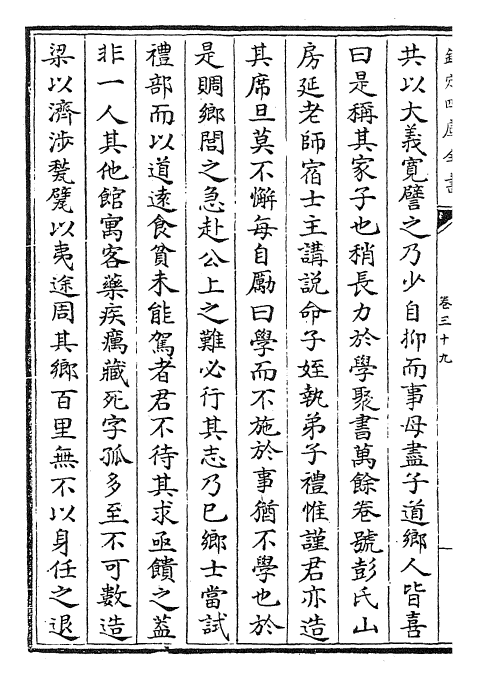 欽定四庫全書
卷三十九
共以大義寛譬之乃少自抑而事母盡子道鄉人皆喜
曰是稱其家子也稍長力於學聚書萬餘卷號彭氏山
房延老師宿士主講説命子姪執弟子禮惟謹君亦造
其席旦莫不懈每自勵曰學而不施於事猶不學也於
是賙鄉閭之急赴公上之難必行其志乃已鄉士當試
禮部而以道逺食貧未能駕者君不待其求亟饋之葢
非一人其他館寓客藥疾癘藏死字孤多至不可數造
梁以濟渉甃甓以夷途周其鄉百里無不以身任之退